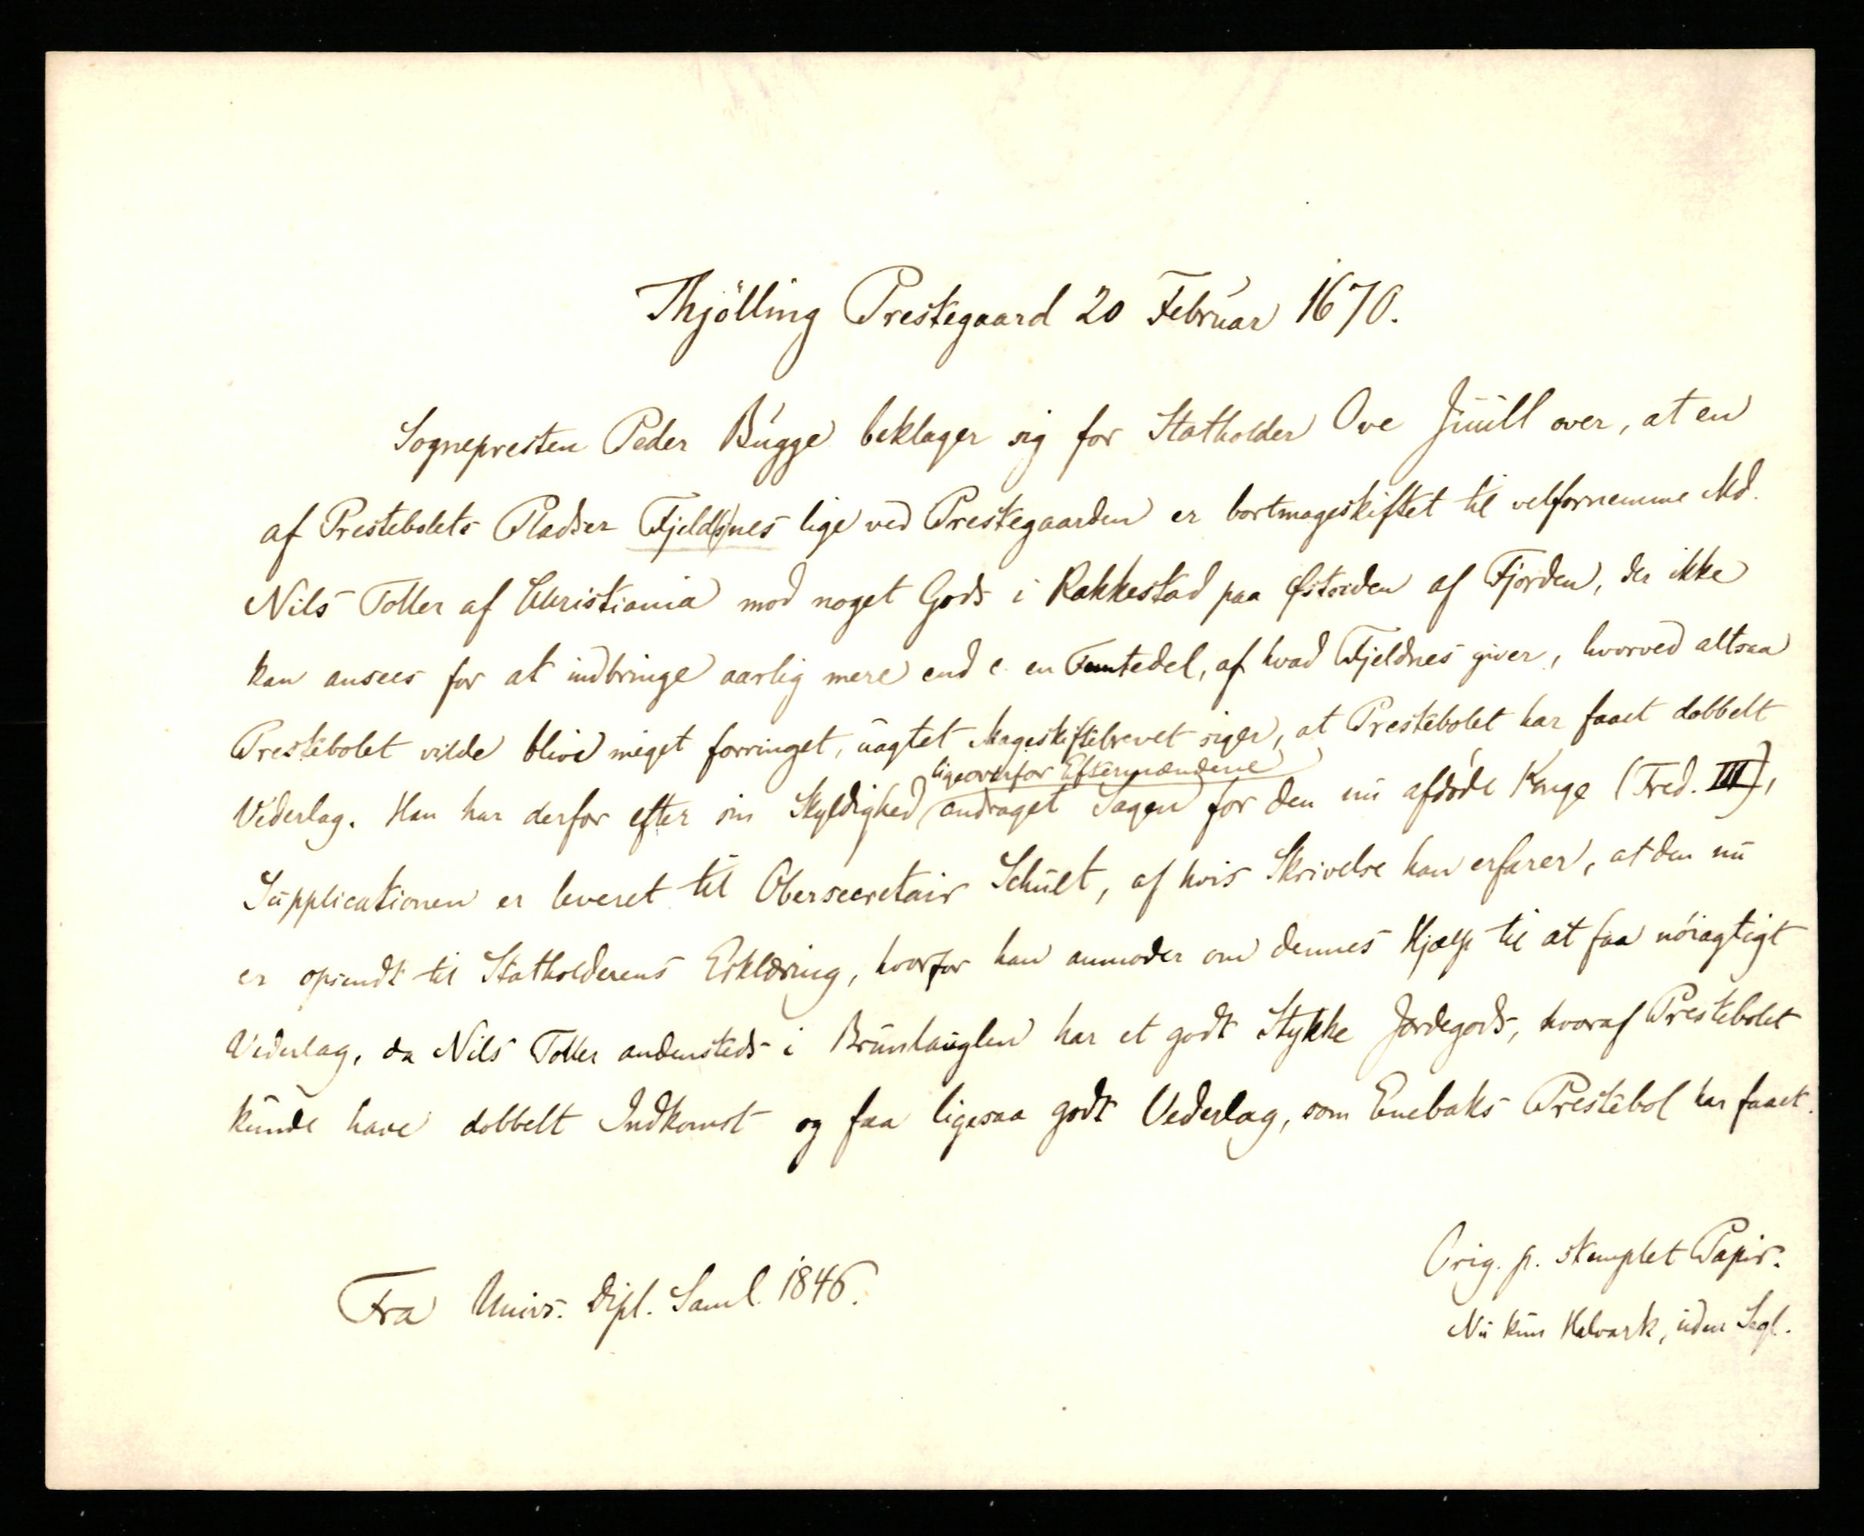 Thjölling Prestegaard 20 Februar 1670.
Sognepresten Peder Bugge beklager sig for Statholder Ove Juull over, at en
af Prestebolets Pladser Fjeld(s)nes lige ved Prestegaarden er bortmageskiftet til velfornemme Md.
Nils Toller af Christiania mod noget Gods i Rakkestad paa Østsiden af Fjorden, der ikke
kan ansees for at indbringe aarlig mere end c. en Femtedel, af hvad Fjeldnes giver, hvorved altsaa
Prestebolet vilde blive meget forringet, uagtet Mageskiftebrevet siger, at Prestebolet har faaet dobbelt
ligeoverfor Eftermændene
Vederlag. Han har derfor efter sin Skyldighed andraget Sagen for den nu afdøde Konge (Fred. III),
Supplicationen er leveret til Obersecretair Schult, af hvis Skrivelse han erfarer, at den nu
er opsendt til Statholderens Erklæring, hvorfor han anmoder om dennes Hjælp til at faa nöiagtigt
Vederlag, da Nils Toller andensteds i Brunlauglen har et godt Stykke Jordegods, hvoraf Prestebolet
kunde have dobbelt Indkomst og faa ligesaa godt Vederlag, som Enebaks Prestebol har faaet.
Orig. p. stemplet Papir.
Fra Univs. Dipl. Saml. 1846.
Nu kun Halvark, uden Segl.